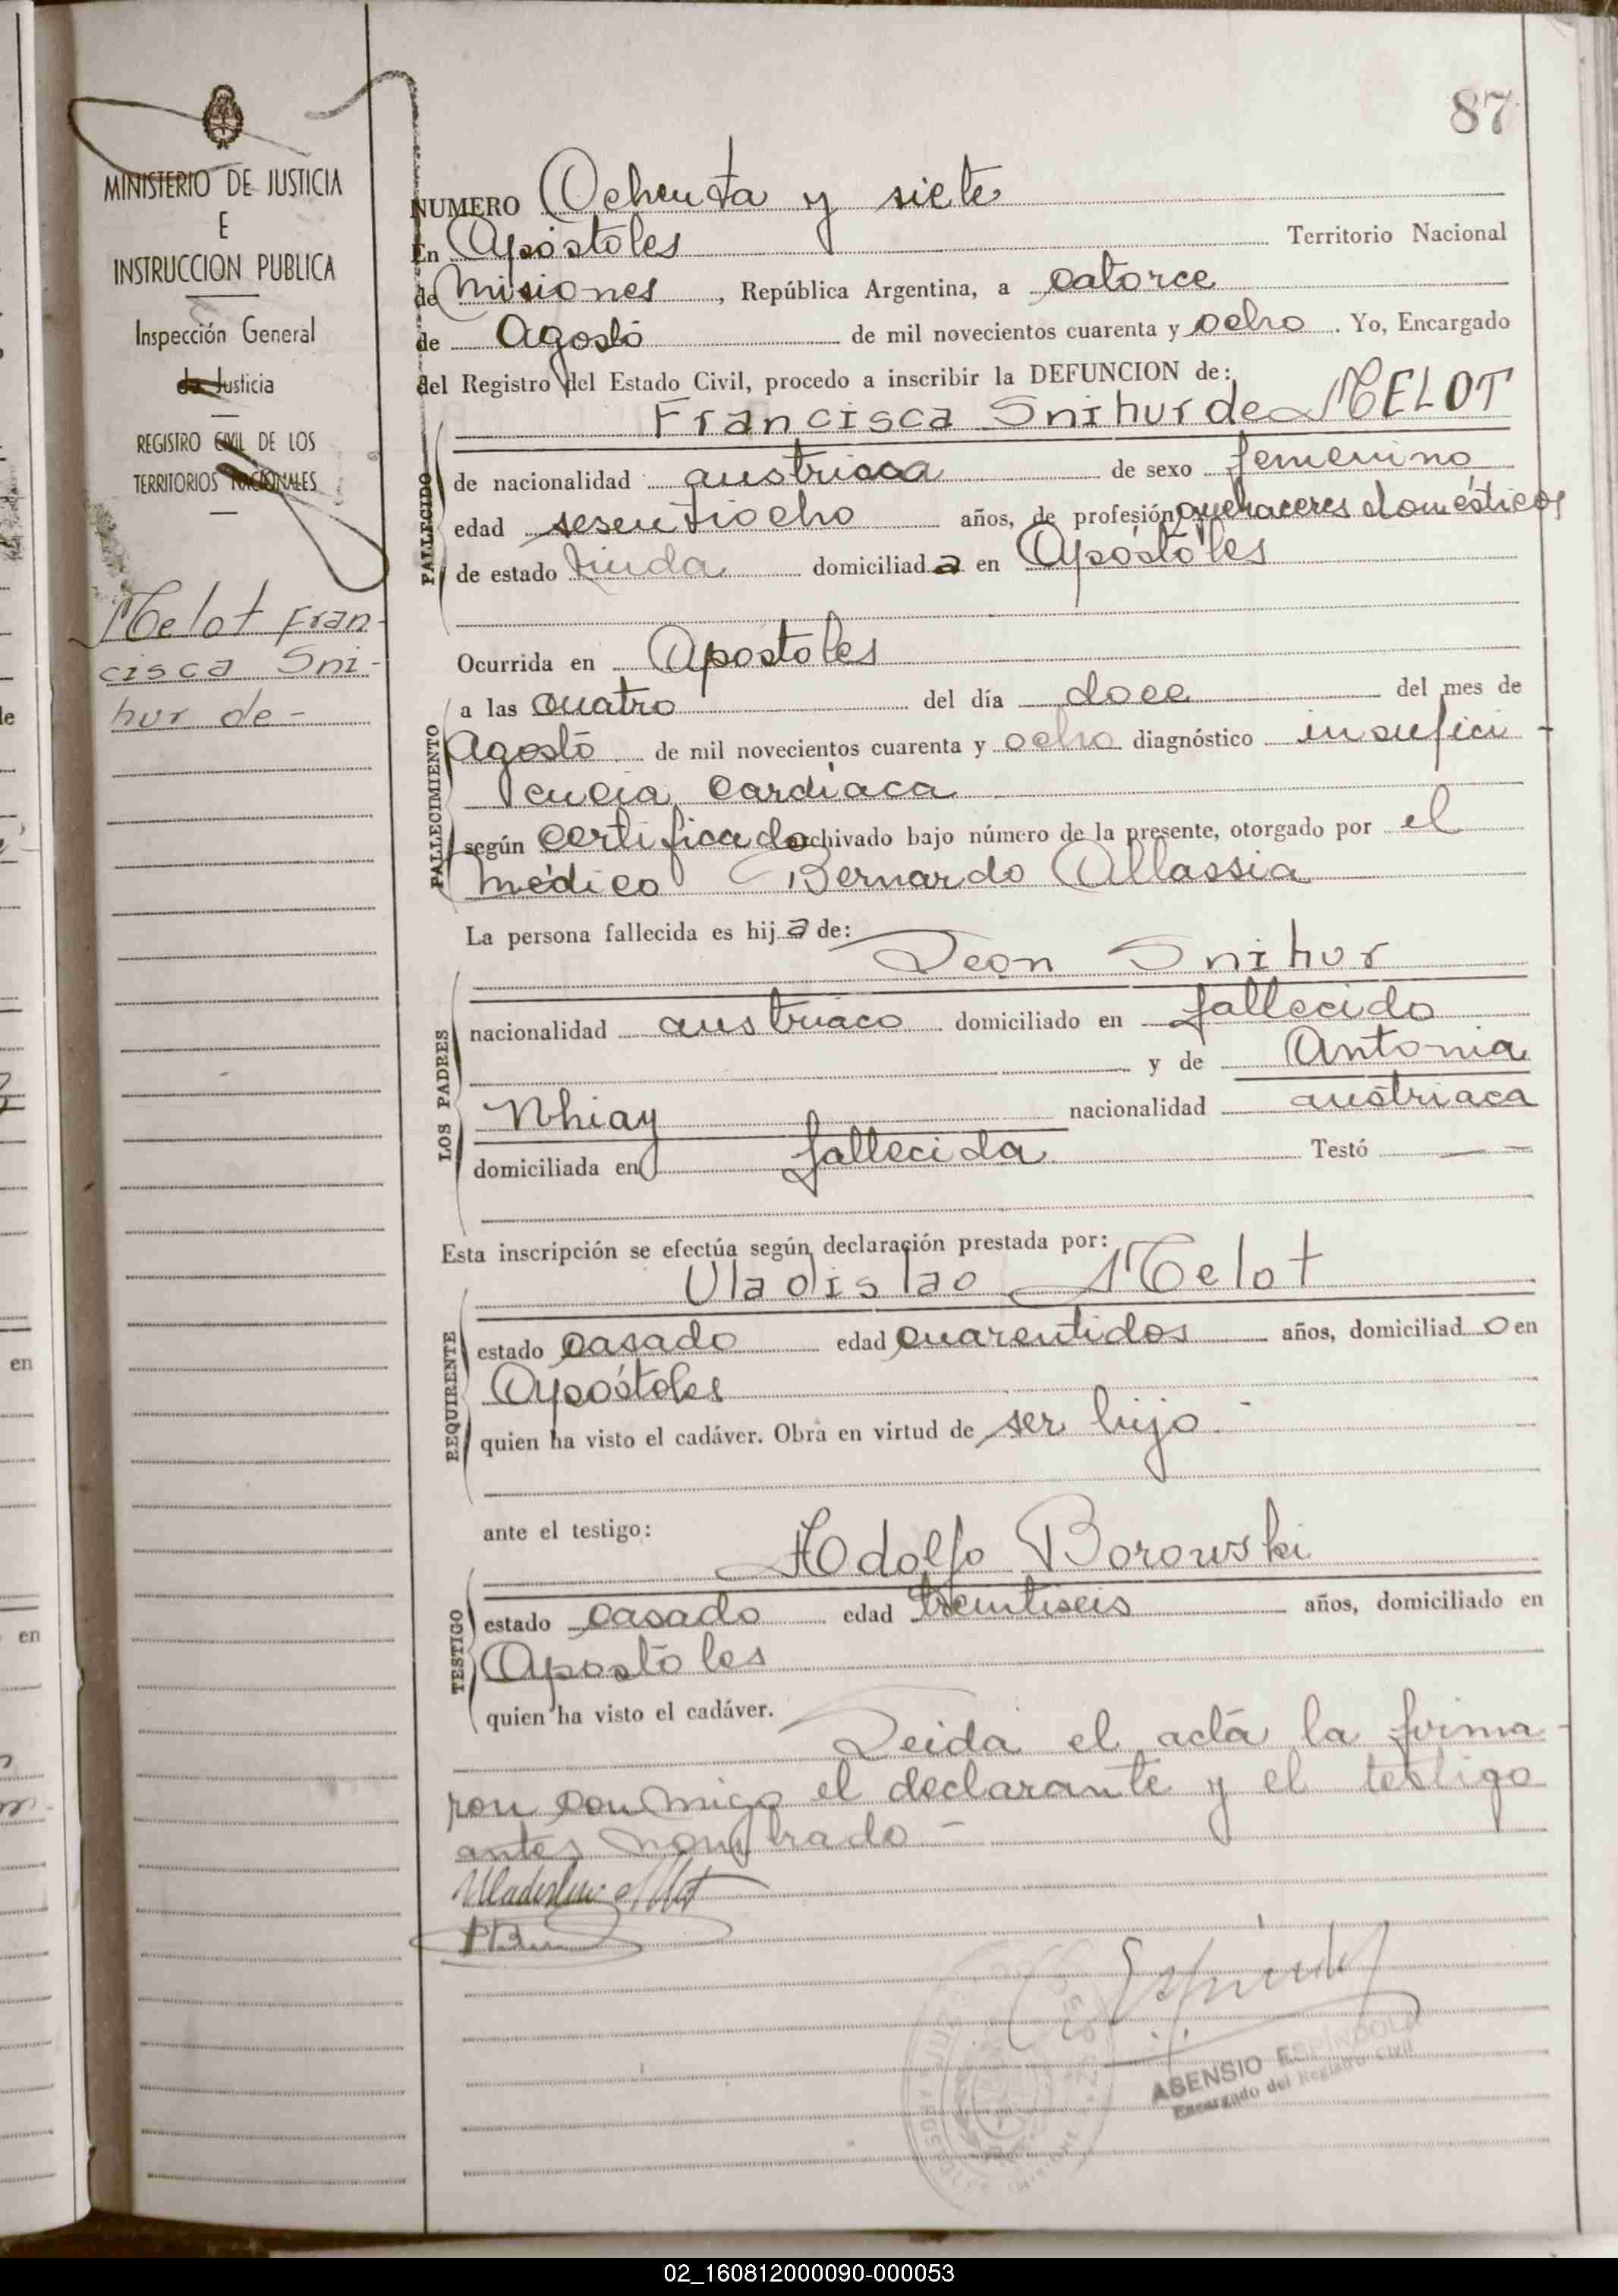 87
MINISTERIO DE JUSTICIA
E
INSTRUCCION PUBLICA
Inspección General
de Justicia
REGISTRO CIVIL DE LOS
TERRITORIOS NACIONALES
Melot Fran-
cisca Sni-
hur de-
NUMERO Ochenta y siete
En Apóstoles Territorio Nacional
de Misiones, República Argentina, a catorce
de Agosto de mil novecientos cuarenta y ocho. Yo, Encargado
del Registro del Estado Civil, procedo a inscribir la DEFUNCION de:
Francisca Snihur de MELOT
FALLECIDO
de nacionalidad austriaca de sexo femenino
edad sesentiocho años, de profesión quehaceres domésticos
de estado viuda domiciliada en Apóstoles
Ocurrida en Apostoles
FALLECIMIENTO
a las cuatro del día doce del mes de
Agosto de mil novecientos cuarenta y ocho diagnóstico insufici-
encia cardíaca
según certificado archivado bajo número de la presente, otorgado por el
médico Bernardo Allassia
La persona fallecida es hija de:
Leon Snihur
LOS PADRES
nacionalidad austriaco domiciliado en fallecido
y de Antonia
Nhiay nacionalidad austriaca
domiciliada en fallecida Testó —
Esta inscripción se efectúa según declaración prestada por:
Uladislao Melot
REQUIRENTE
estado casado edad cuarentidos años, domiciliado en
Apóstoles
quien ha visto el cadáver. Obra en virtud de ser hijo.-
ante el testigo:
Adolfo Borowski
TESTIGO
estado casado edad treintiseis años, domiciliado en
Apostoles
quien ha visto el cadáver.
Leida el acta la firma-
ron conmigo el declarante y el testigo
antes nombrado.-
ASENSIO ESPÍNDOLA
Encargado del Registro Civil
en
en
02_160812000090-000053